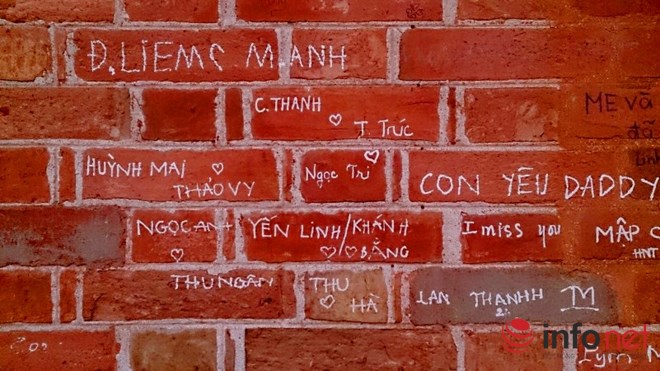 Đ, LIEMC M.ANH
C.THANH
♡ T Trúc
ME VÀ
đã
HUỲNH MAI ♡
THẢO VY
Ngọc Trí ♡
CON YÊU DADDY
NGỌC ANH
♡
YẾN LINH/KHÁNH
♡♡ BẰNG
I miss you
MẬP
HNT
THU NGÂN
THU
♡ HÀ
LAN THANHH
infonet